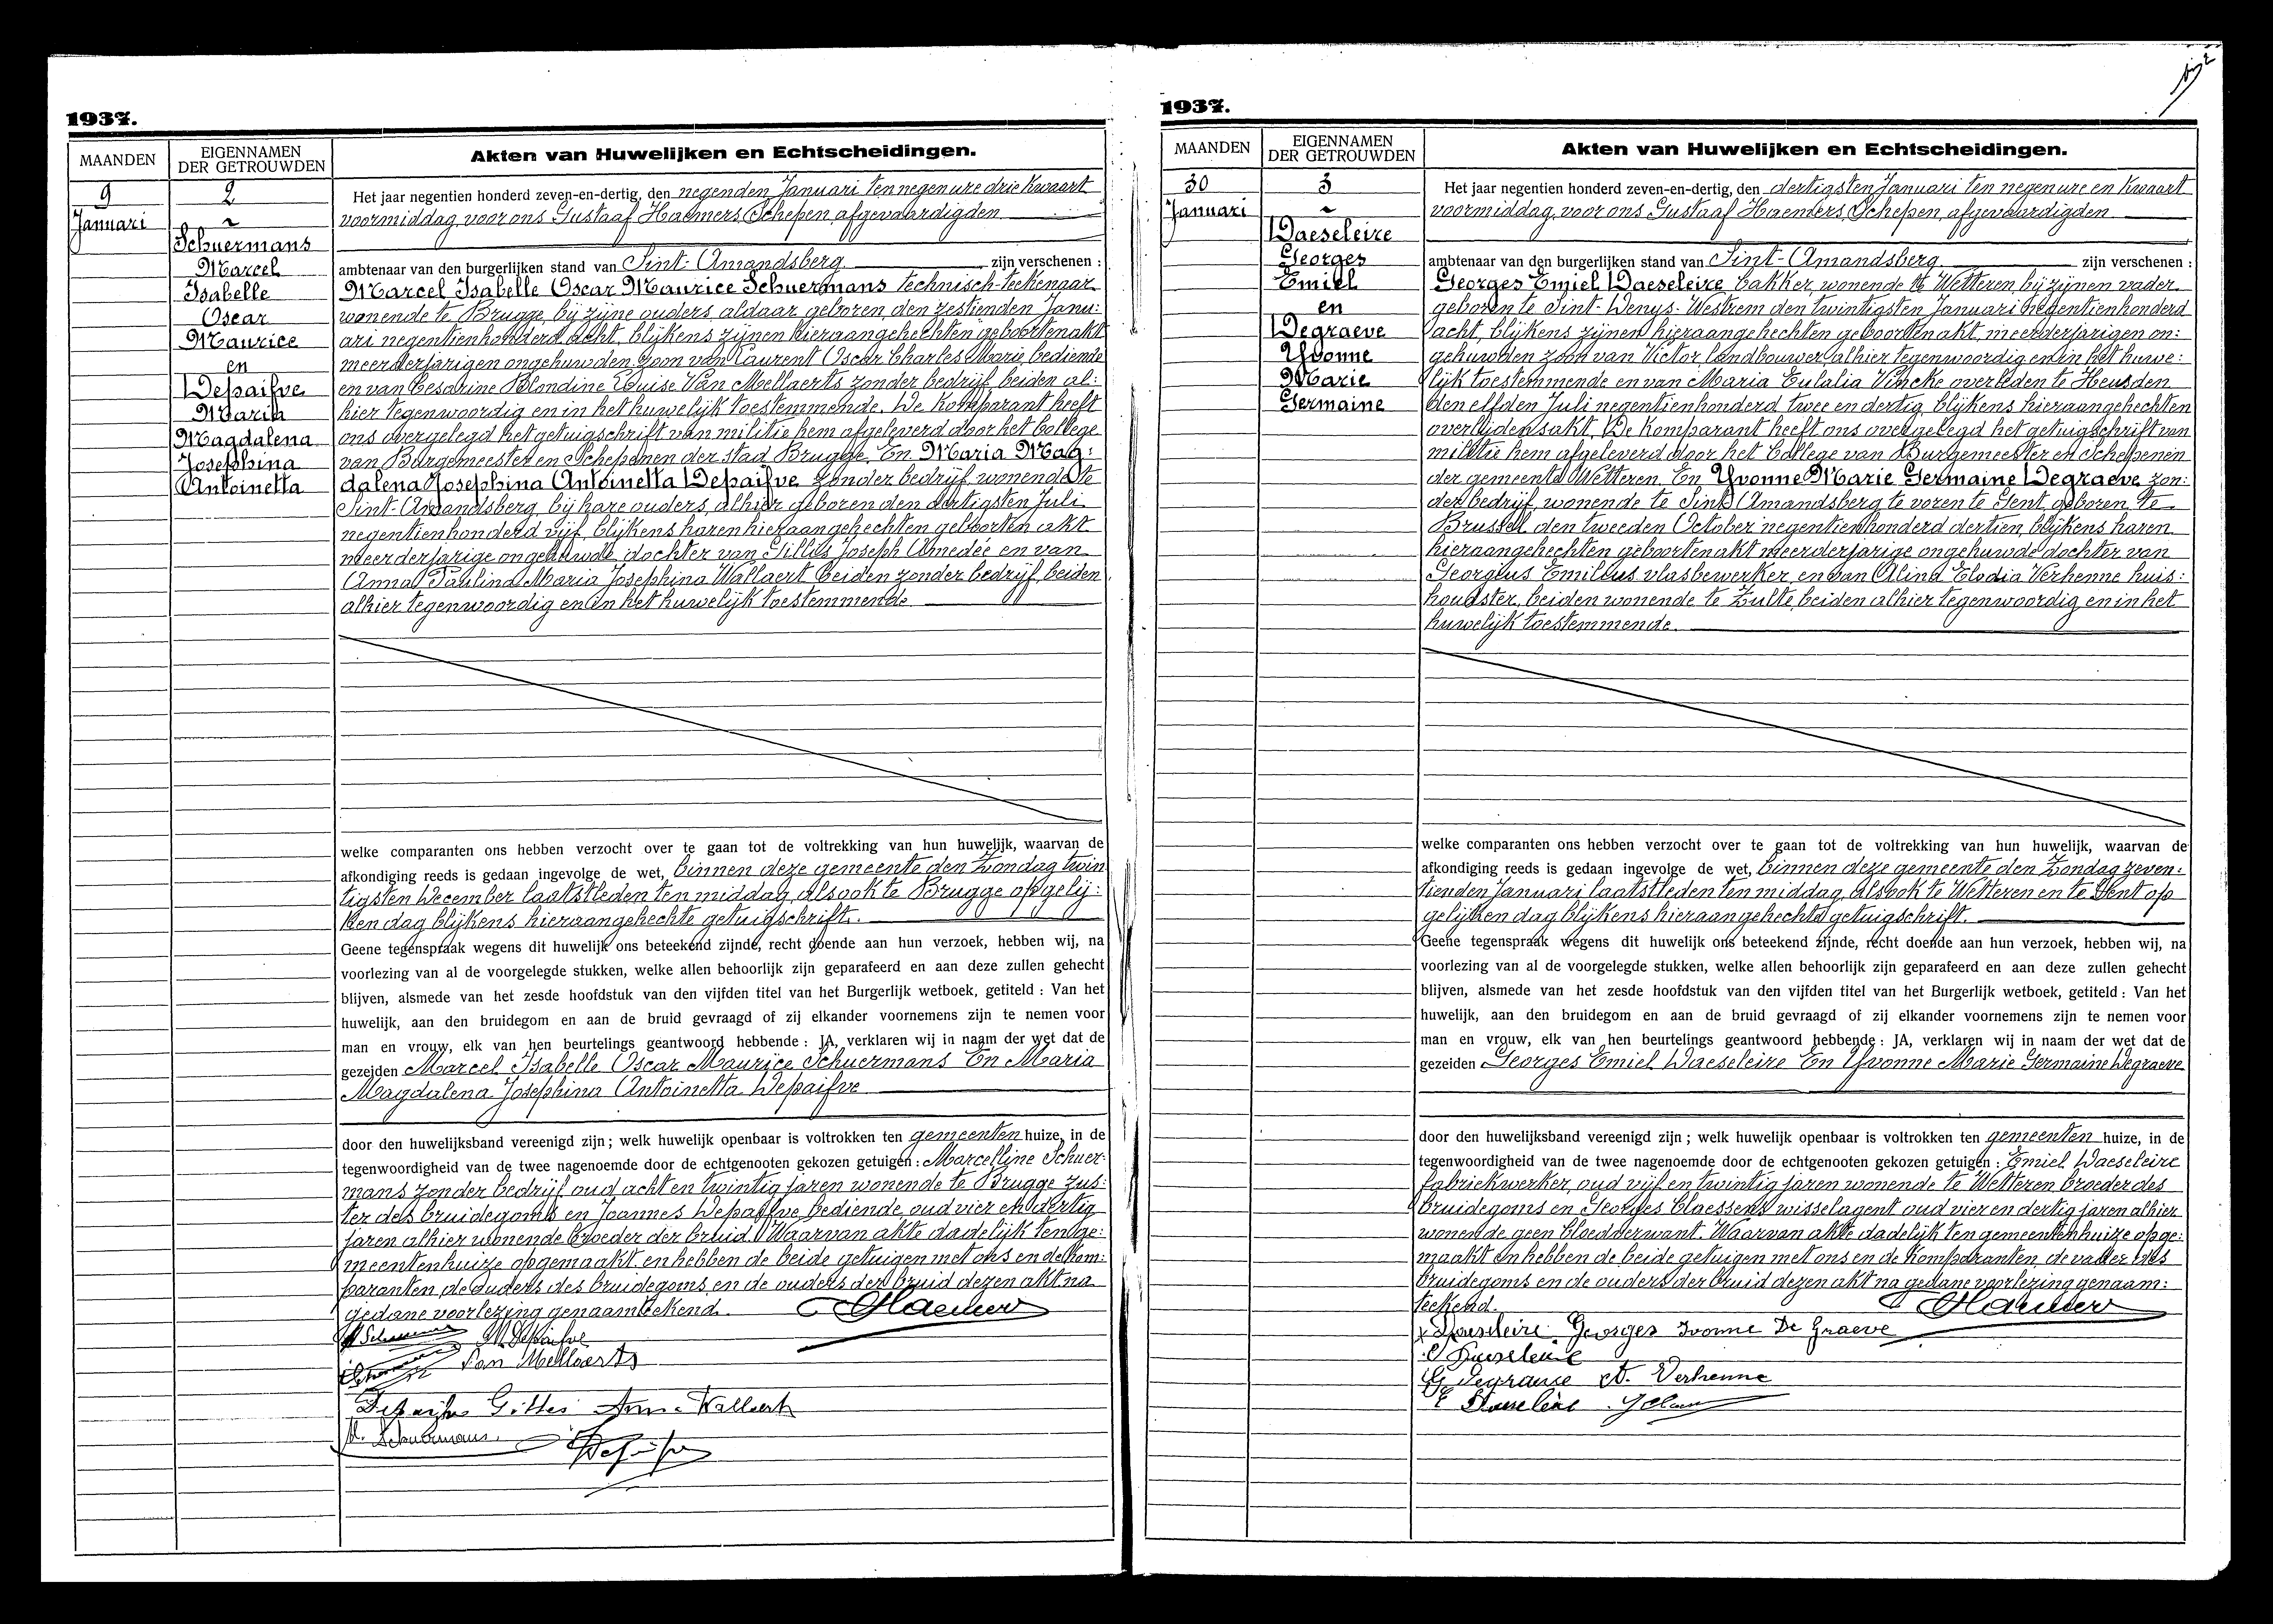 bijz
1937.
MAANDEN
EIGENNAMEN
DER GETROUWDEN
Akten van Huwelijken en Echtscheidingen.
9
Januari
2
~
Schuermans
Marcel
Isabelle
Oscar
Maurice
en
Depaifve
Maria
Magdalena
Josephina
Antoinetta
Het jaar negentien honderd zeven-en-dertig, den negenden Januari ten negen ure drie kwaart
voormiddag, voor ons Gustaaf Haemers, Schepen, afgevaardigden
ambtenaar van den burgerlijken stand van Sint-Amandsberg zijn verschenen :
Marcel Isabelle Oscar Maurice Schuermans technisch-teekenaar
wonende te Brugge, bij zijne ouders, aldaar geboren, den zestienden Janu:
ari negentienhonderd acht, blijkens zijnen hieraangehechten geboortenakt
meerderjarigen ongehuwden zoon van Laurent Oscar Charles Marie bediende
en van Cesarine Blondine Luise Van Mellaerts zonder bedrijf, beiden al:
hier tegenwoordig en in het huwelijk toestemmende. De komparant heeft
ons overgelegd het getuigschrift van militie hem afgeleverd door het College
van Burgemeester en Schepenen der stad Brugge. En Maria Mag:
dalena Josephina Antoinetta Depaifve zonder bedrijf, wonende te
Sint-Amandsberg, bij hare ouders, alhier geboren den dertigsten Juli
negentienhonderd vijf, blijkens haren hieraangehechten geboorten akt
meerderjarige ongehuwde dochter van Gilles Joseph Amedée en van
Anna Paulina Maria Josephina Wallaert beiden zonder bedrijf, beiden
alhier tegenwoordig en in het huwelijk toestemmende
welke comparanten ons hebben verzocht over te gaan tot de voltrekking van hun huwelijk, waarvan de
afkondiging reeds is gedaan ingevolge de wet, binnen deze gemeente den Zondag twin
tigsten December laatstleden ten middag, alsook te Brugge op gelij:
ken dag blijkens hieraangehechte getuigschrift.
Geene tegenspraak wegens dit huwelijk ons beteekend zijnde, recht doende aan hun verzoek, hebben wij, na
voorlezing van al de voorgelegde stukken, welke allen behoorlijk zijn geparafeerd en aan deze zullen gehecht
blijven, alsmede van het zesde hoofdstuk van den vijfden titel van het Burgerlijk wetboek, getiteld : Van het
huwelijk, aan den bruidegom en aan de bruid gevraagd of zij elkander voornemens zijn te nemen voor
man en vrouw, elk van hen beurtelings geantwoord hebbende : JA, verklaren wij in naam der wet dat de
gezeiden Marcel Isabelle Oscar Maurice Schuermans En Maria
Magdalena Josephina Antoinetta Depaifve
door den huwelijksband vereenigd zijn ; welk huwelijk openbaar is voltrokken ten gemeenten huize, in de
tegenwoordigheid van de twee nagenoemde door de echtgenooten gekozen getuigen : Marcelline Schuer-
mans zonder bedrijf oud acht en twintig jaren wonende te Brugge zus:
ter des bruidegoms en Joannes Depaifve, bediende, oud vier en dertig
jaren alhier wonende broeder der bruid. Waarvan akte dadelijk ten ge:
meentenhuize opgemaakt, en hebben de beide getuigen met ons en de kom:
paranten, de ouders des bruidegoms en de ouders der bruid dezen akt na
gedane voorlezing genaamteekend. Haemers
M Depaifve
Van Mellaerts
Depaifve Gilles Anna Wallaert
M. Schuermans. Depaifve
1937.
MAANDEN
EIGENNAMEN
DER GETROUWDEN
Akten van Huwelijken en Echtscheidingen.
30
Januari
3
~
Daeseleire
Georges
Emiel
en
Degraeve
Yvonne
Marie
Germaine
Het jaar negentien honderd zeven-en-dertig, den dertigsten Januari ten negen ure en kwaart
voormiddag, voor ons Gustaaf Haemers, Schepen, afgevaardigden
ambtenaar van den burgerlijken stand van Sint-Amandsberg zijn verschenen :
Georges Emiel Daeseleire bakker, wonende te Wetteren, bij zijnen vader
geboren te Sint-Denys-Westrem den twintigsten Januari negentienhonderd
acht, blijkens zijnen hieraangehechten geboortenakt, meerderjarigen on:
gehuwden zoon van Victor landbouwer alhier tegenwoordig en in het huwe:
lijk toestemmende en van Maria Eulalia Vincke overleden te Heusden
den elfden Juli negentienhonderd twee en dertig, blijkens hieraangehechten
overlijdensakt. De komparant heeft ons overgelegd het getuigschrift van
militie hem afgeleverd door het College van Burgemeester en Schepenen
der gemeente Wetteren. En Yvonne Marie Germaine Degraeve zon:
der bedrijf, wonende te Sint-Amandsberg te voren te Gent, geboren te
Brussel den tweeden October negentienhonderd dertien, blijkens haren
hieraangehechten geboortenakt meerderjarige ongehuwde dochter van
Georgius Emilius vlasbewerker, en van Alina Elodia Verhenne huis:
houdster, beiden wonende te Zulte, beiden alhier tegenwoordig en in het
huwelijk toestemmende.
welke comparanten ons hebben verzocht over te gaan tot de voltrekking van hun huwelijk, waarvan de
afkondiging reeds is gedaan ingevolge de wet, binnen deze gemeente den Zondag zeven:
tienden Januari laatstleden ten middag, alsook te Wetteren en te Gent op
gelijken dag blijkens hieraangehechte getuigschrift.
Geene tegenspraak wegens dit huwelijk ons beteekend zijnde, recht doende aan hun verzoek, hebben wij, na
voorlezing van al de voorgelegde stukken, welke allen behoorlijk zijn geparafeerd en aan deze zullen gehecht
blijven, alsmede van het zesde hoofdstuk van den vijfden titel van het Burgerlijk wetboek, getiteld : Van het
huwelijk, aan den bruidegom en aan de bruid gevraagd of zij elkander voornemens zijn te nemen voor
man en vrouw, elk van hen beurtelings geantwoord hebbende : JA, verklaren wij in naam der wet dat de
gezeiden Georges Emiel Daeseleire En Yvonne Marie Germaine Degraeve
door den huwelijksband vereenigd zijn ; welk huwelijk openbaar is voltrokken ten gemeenten huize, in de
tegenwoordigheid van de twee nagenoemde door de echtgenooten gekozen getuigen : Emiel Daeseleire
fabriekwerker, oud vijf en twintig jaren wonende te Wetteren, broeder des
bruidegoms en Georges Claessens, wisselagent oud vier en dertig jaren alhier
wonende geen bloedverwant. Waarvan akte dadelijk ten gemeentenhuize opge:
maakt en hebben de beide getuigen met ons en de komparanten, de vader des
bruidegoms en de ouders der bruid dezen akt na gedane voorlezing genaam:
teekend. Haemers
Daeseleire Georges Ivonne De Graeve
Daeseleire
G Degraeve A. Verhenne
E Daeseleire